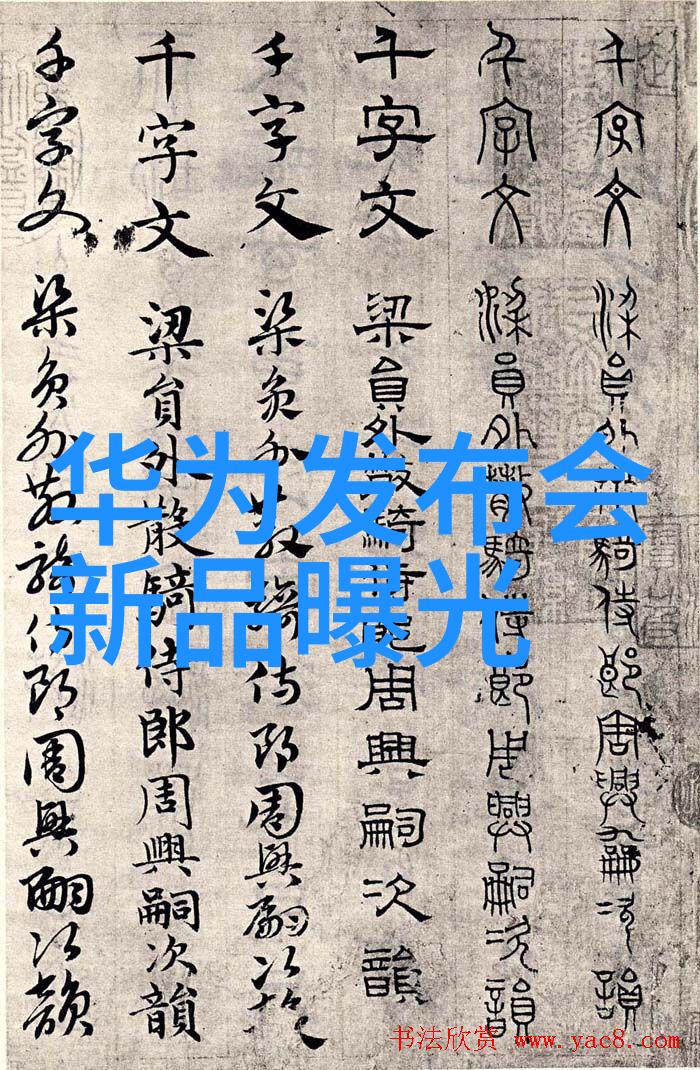 千字文 梁員外散騎侍郎周興嗣次韻
千字文 梁員外散騎侍郎周興嗣次韻
千字文 梁員外散騎侍郎周興嗣次韻
千字文 梁員外散騎侍郎周興嗣次韻
千字文 梁員外散騎侍郎周興嗣次韻
千字文 梁員外散騎侍郎周興嗣次韻
华为发布会
新品曝光
书法欣赏 www.yac8.com